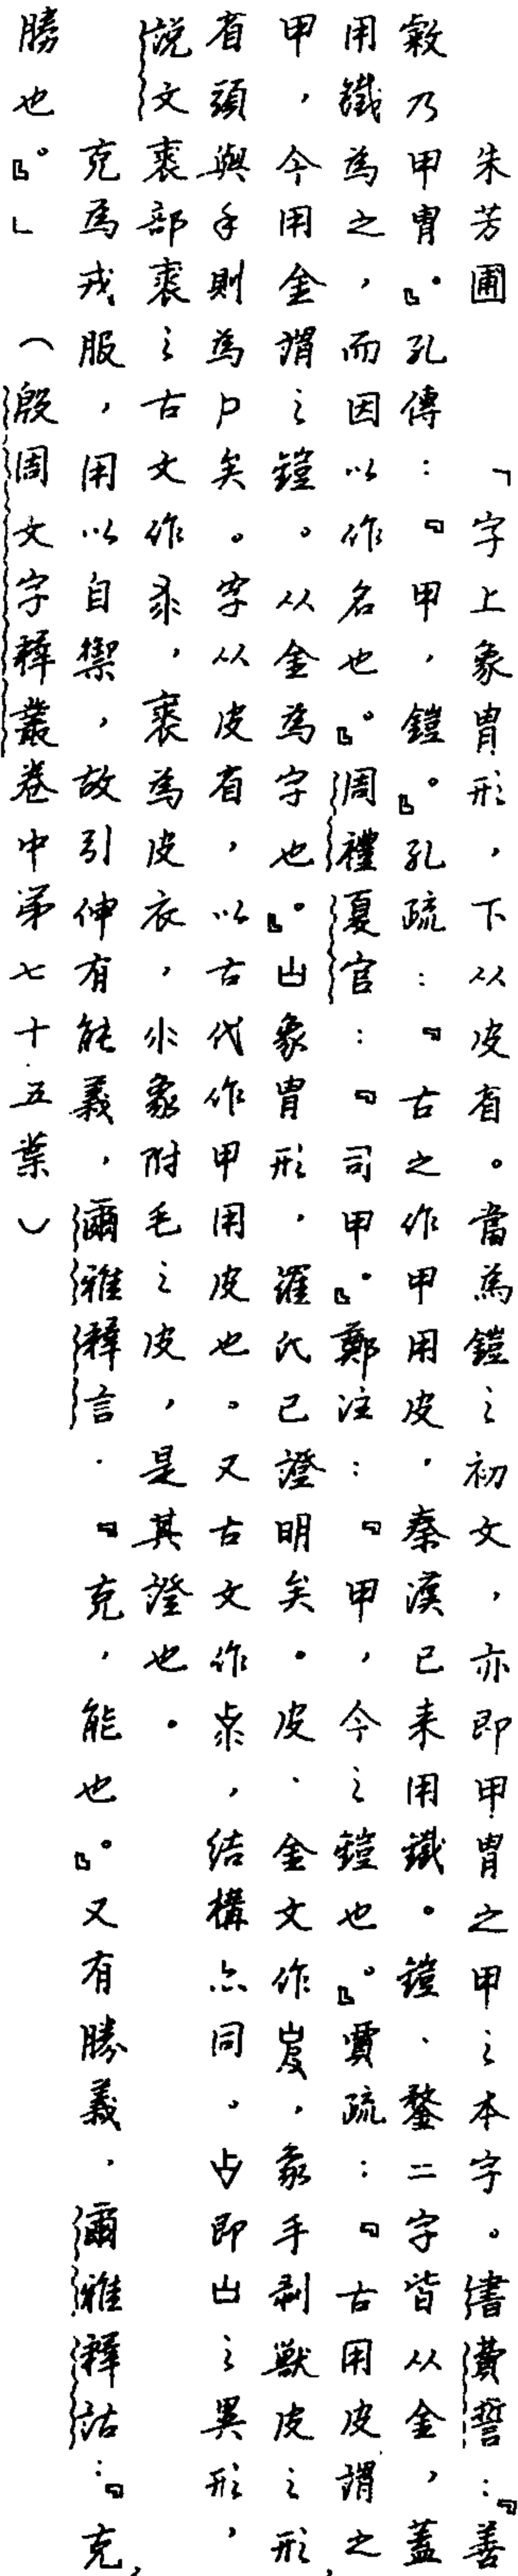 朱芳圃　「字上象冑形，下从皮省。當為鎧之初文，亦即甲冑之甲之本字。書費誓：『善
敹乃甲冑』。孔傳：『甲，鎧』。孔疏：『古之作甲用皮，秦漢已来用鐵。鎧、鍪二字皆从金，蓋
用鐵為之，而因以作名也』。周禮夏官：『司甲』。鄭注：『甲，今之鎧也』。賈疏：『古用皮謂之
甲，今用金謂之鎧。从金為字也』。象冑形，羅氏已證明矣。皮、金文作，象手剥獸皮之形，
省頭與手則為尸矣。字从皮省，以古代作甲用皮也。又古文作，結構亦同。即之異形，
説文裘部裘之古文作求，裘為皮衣，氺象附毛之皮，是其證也。
克為戎服，用以自禦，故引伸有能義，爾雅釋言：『克，能也』。又有勝義，爾雅釋詁：『克，
勝也』。」（殷周文字釋叢卷中第七十五葉）